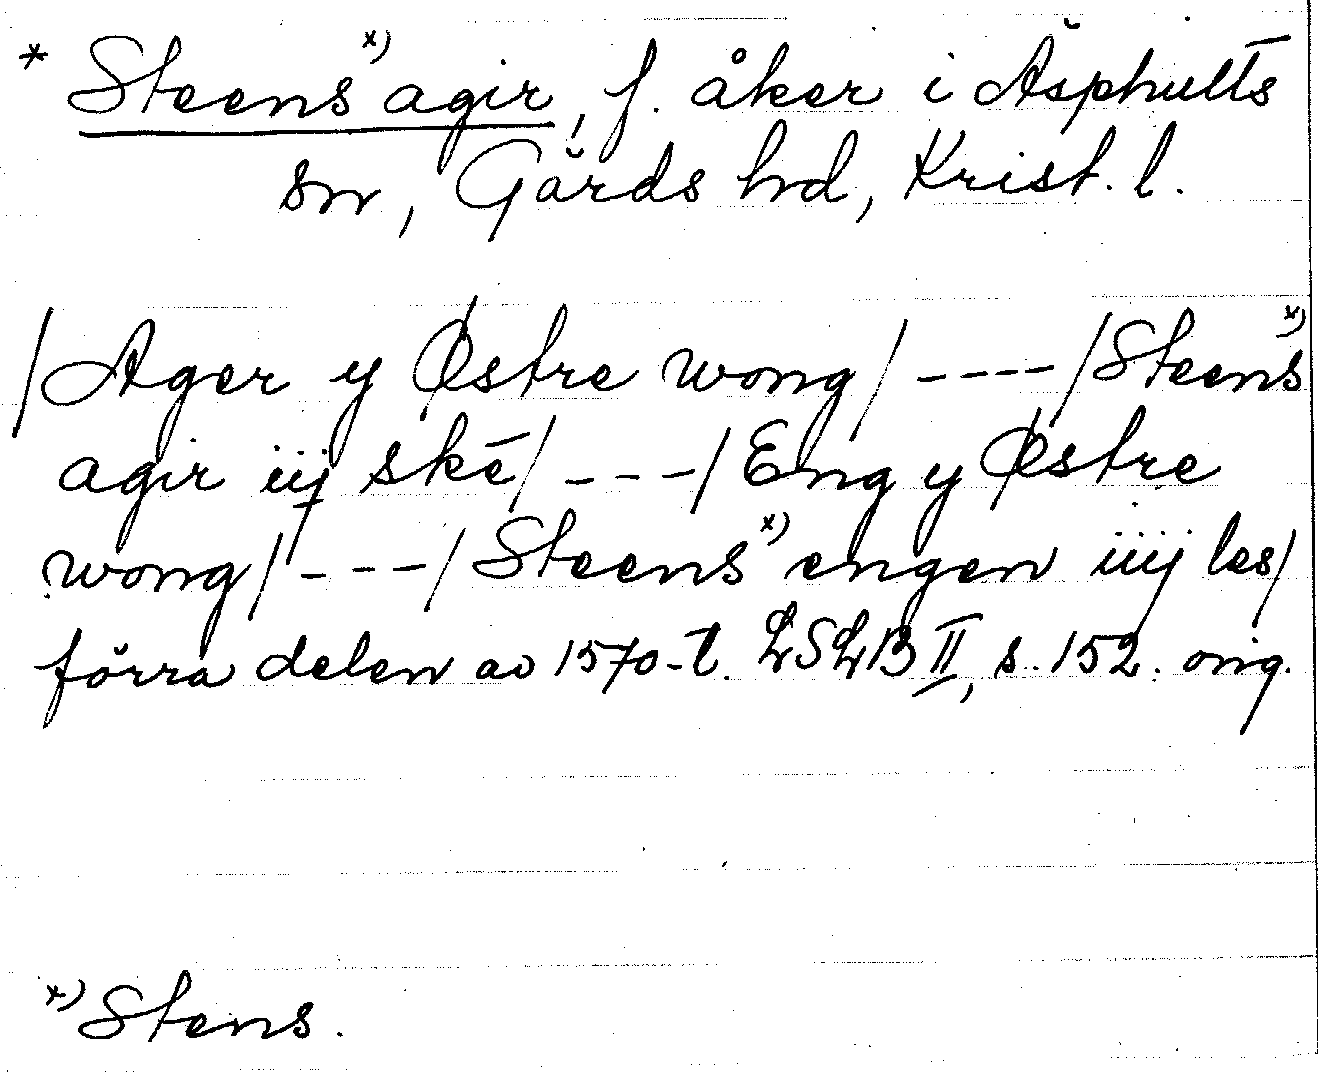 * Steens x) agir, f. åker i Äsphults
sn, Gärds hd, Krist. l.
/Ager y Østre wong/ ----/Steens x)
agir iij skē/ ---/Eng y Østre
wong/ ---/Steens x) engen iiij les/
förra delen av 1570-t. LSLB II, s. 152. orig.
x) Stens.